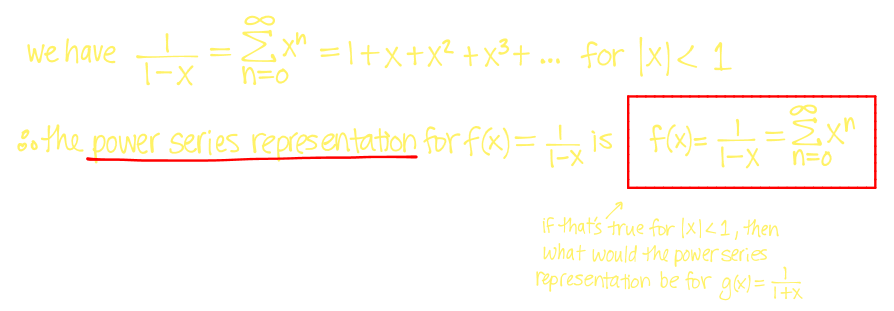 we have 1/(1-x) = ∞∑n=0 xⁿ = 1+x+x²+x³+... for |x|< 1
∴ the power series representation for f(x)= 1/(1-x) is f(x)= 1/(1-x) = ∞∑n=0 xⁿ
if that's true for |x|<1, then
what would the power series
representation be for g(x)= 1/(1+x)